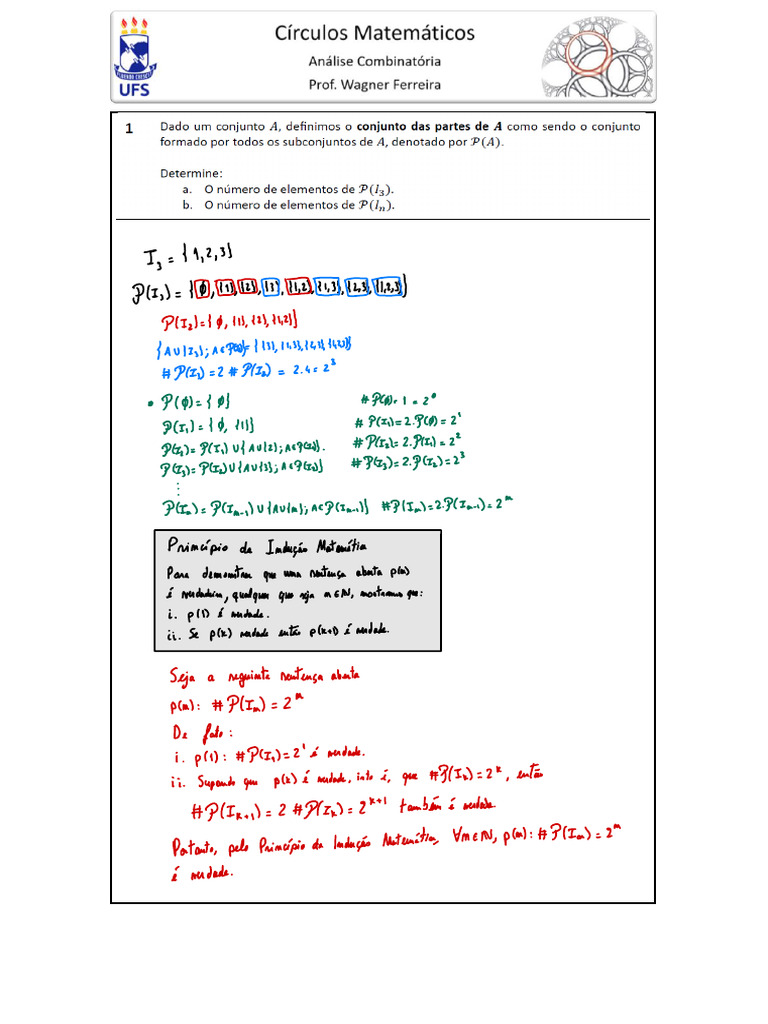 UFS
Círculos Matemáticos
Análise Combinatória
Prof. Wagner Ferreira
1 Dado um conjunto A, definimos o conjunto das partes de A como sendo o conjunto
formado por todos os subconjuntos de A, denotado por 𝒫(A).
Determine:
a. O número de elementos de 𝒫(I₃).
b. O número de elementos de 𝒫(Iₙ).
I₃ = {1,2,3}
𝒫(I₃) = {∅, {1}, {2}, {3}, {1,2}, {1,3}, {2,3}, {1,2,3}}
𝒫(I₂) = {∅, {1}, {2}, {1,2}}
#𝒫(I₃) = 2 #𝒫(I₂) = 2.4 = 2³
• 𝒫(∅) = {∅} #𝒫(∅) = 1 = 2⁰
𝒫(I₁) = {∅, {1}} #𝒫(I₁) = 2.𝒫(∅) = 2¹
𝒫(I₂) = 𝒫(I₁) ∪ {A∪{2}; A∈𝒫(I₁)}. #𝒫(I₂) = 2.𝒫(I₁) = 2²
𝒫(I₃) = 𝒫(I₂) ∪ {A∪{3}; A∈𝒫(I₂)} #𝒫(I₃) = 2.𝒫(I₂) = 2³
⋮
𝒫(Iₙ) = 𝒫(Iₙ₋₁) ∪ {A∪{n}; A∈𝒫(Iₙ₋₁)} #𝒫(Iₙ) = 2.𝒫(Iₙ₋₁) = 2ⁿ
Princípio da Indução Matemática
Para demonstrar que uma sentença aberta p(n)
é verdadeira, qualquer que seja n∈ℕ, mostramos que:
i. p(1) é verdade.
ii. Se p(k) verdade então p(k+1) é verdade.
Seja a seguinte sentença aberta
p(n): #𝒫(Iₙ) = 2ⁿ
De fato:
i. p(1): #𝒫(I₁) = 2¹ é verdade.
ii. Supondo que p(k) é verdade, isto é, que #𝒫(Iₖ) = 2ᵏ, então
#𝒫(Iₖ₊₁) = 2 #𝒫(Iₖ) = 2ᵏ⁺¹ também é verdade.
Portanto, pelo Princípio da Indução Matemática, ∀n∈ℕ, p(n): #𝒫(Iₙ) = 2ⁿ
é verdade.